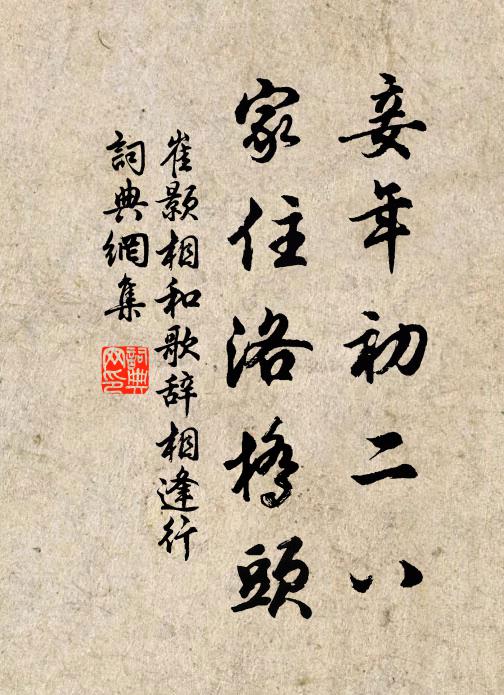 妾年初二八
家住洛橋頭
崔顥相和歌辞相逢行
詞典網集
詞典网印